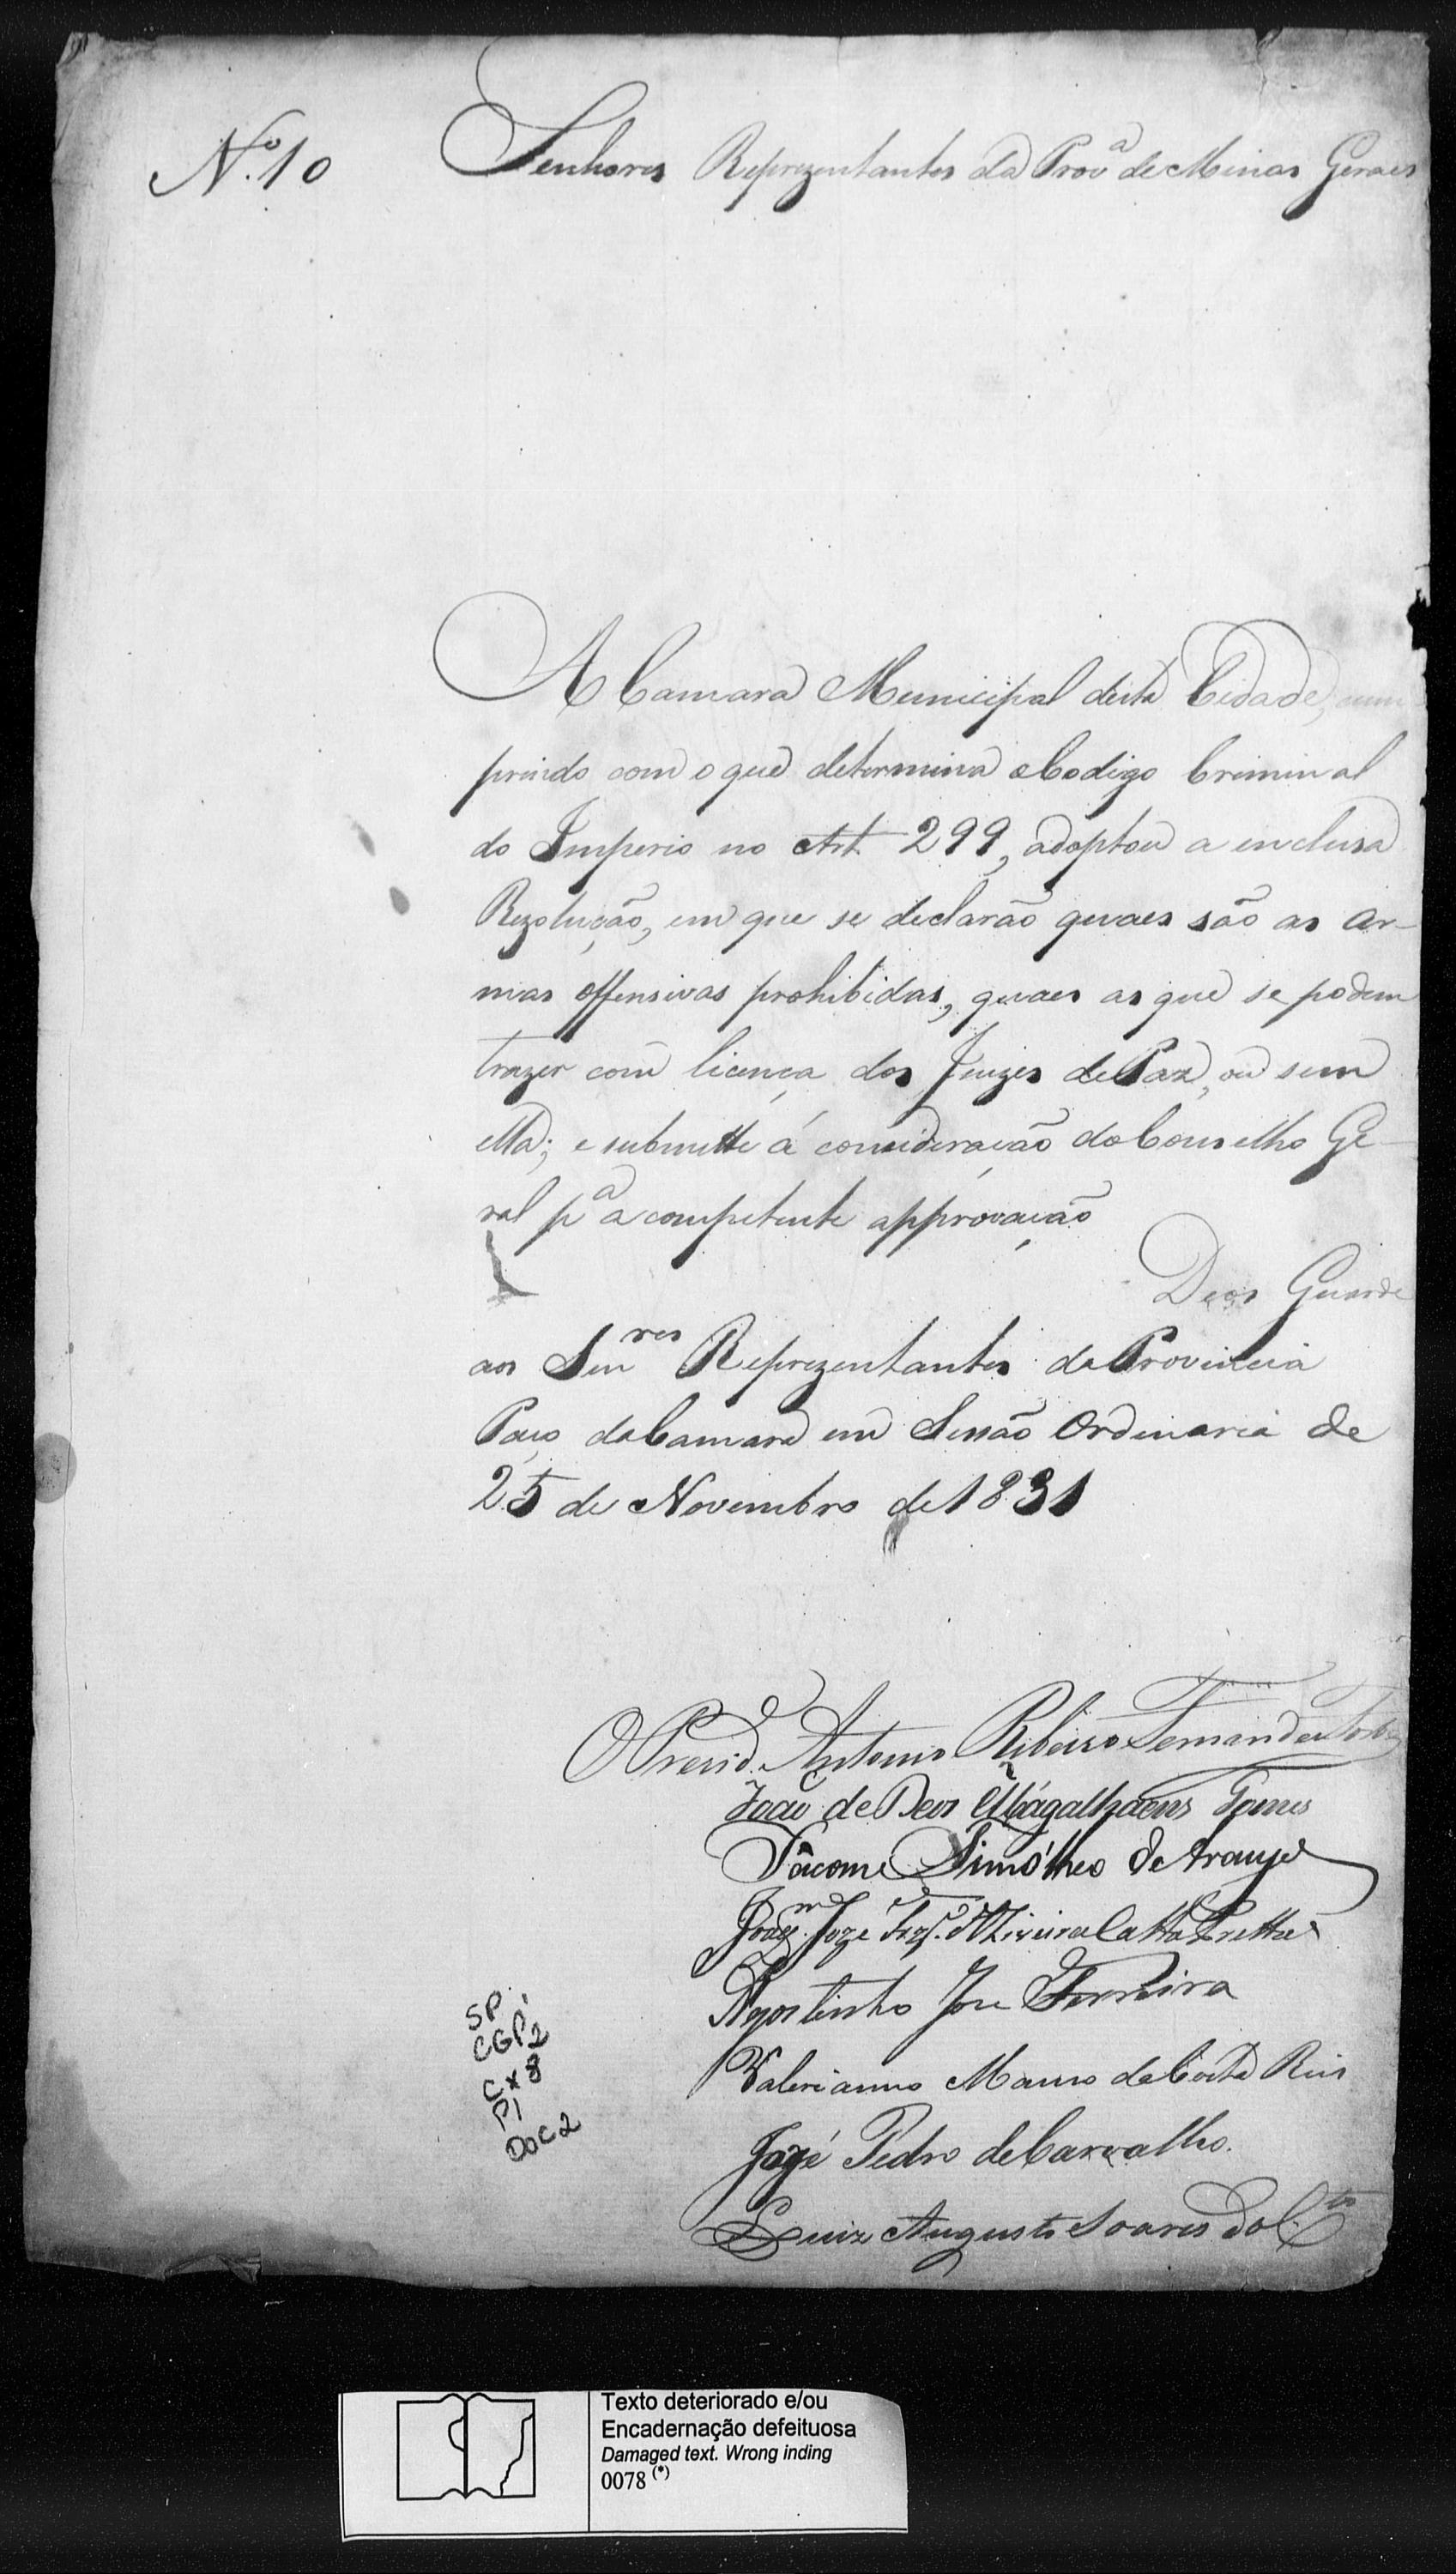 Nº. 10
Senhores Reprezentantes da Provª de Minas Geraes
A Camara Municipal desta Cidade, cum
prindo com o que determina o Codigo Criminal
do Imperio no Art. 299, adoptou a incluza
Rezolução, em que se declarão quaes são as ar-
mas offensivas prohibidas, quaes as que se podem
trazer com licença dos Juizes de Paz, ou sem
ella; e submette á consideração do Conselho Ge-
ral pª a competente approvação
Deos Guarde
aos Senres Reprezentantes da Provincia
Paço da Camara em Sessão Ordinaria de
25 de Novembro de 1831
O Presid.e Antonio Ribeiro Fernandes
João de Deos Magalhaens Gomes
Jácome Timótheo de Araujo
Joaqm. Joze d'Oliveira Catta Pretta
Agostinho Joze Ferreira
Valerianno Manso da Costa Reis
Jozé Pedro de Carvalho.
Luiz Augusto Soares do Cto
SP
CGP2
CX8
P1
DOC2
Texto deteriorado e/ou
Encadernação defeituosa
Damaged text. Wrong inding
0078 (*)